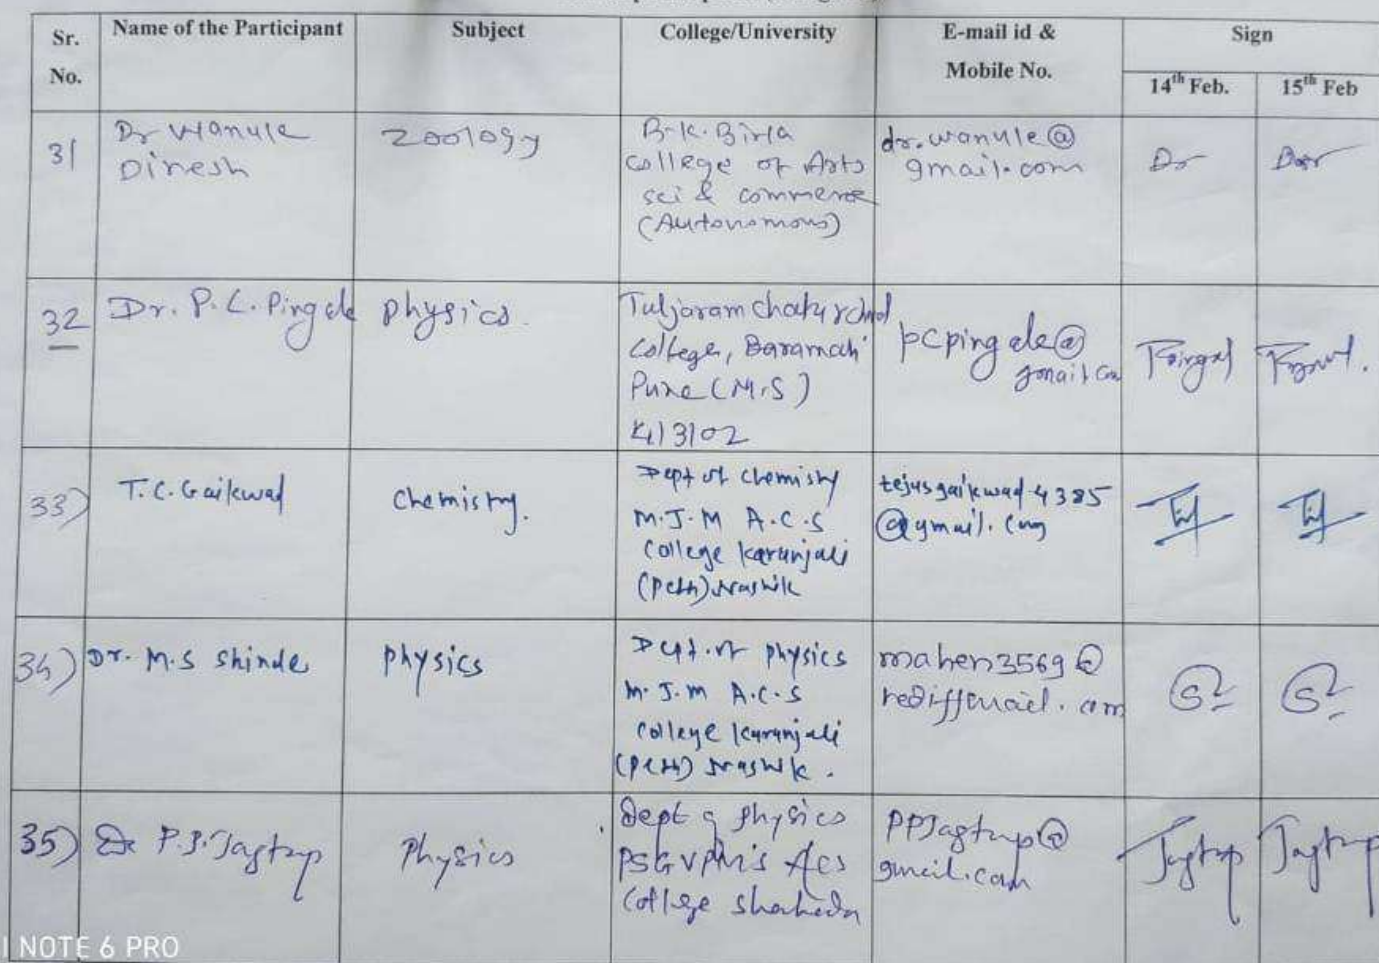 Sr.
No.
Name of the Participant
Subject
College/University
E-mail id &
Mobile No.
Sign
14th Feb.
15th Feb
31
Dr Wanule
Dinesh
Zoology
B.K. Birla
college of Arts
sci & commerce
(Autonomous)
dr.wanule@
gmail.com
32
Dr. P. C. Pingale
Physics.
Tuljaram Chaturchand
College, Baramati
Pune (M.S)
413102
pcpingale@
gmail.com
33)
T.C. Gaikwad
Chemistry.
Dept of chemistry
M.J.M A.C.S
college Karanjali
(Peth) Nashik
tejusgaikwad4385
@ymail.com
34)
Dr. M.S Shinde
Physics
Dept. of physics
M.J.M A.C.S
college Karanjali
(Peth) Nashik.
mahen3569@
rediffmail.com
35)
Dr P.P. Jagtap
Physics
Dept of Physics
PSGVPM's ACS
College Shahada
PPJagtap@
gmail.com
Jagtap
Jagtap
I NOTE 6 PRO